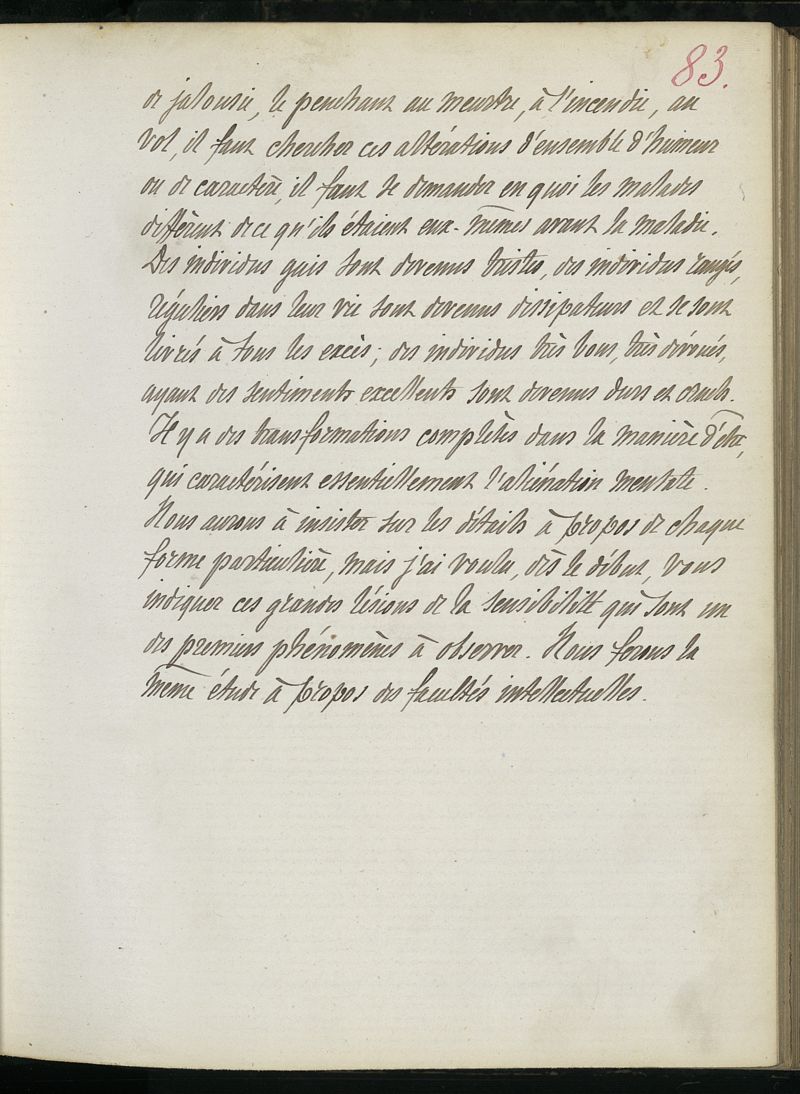 83.
de jalousie, le penchant au meurtre, à l'incendie, au
vol, il faut chercher ces altérations d'ensemble d'humeur
ou de caractère, il faut se demander en quoi les malades
diffèrent de ce qu'ils étaient eux-mêmes avant la maladie.
Des individus gais sont devenus tristes, des individus rangés,
réguliers dans leur vie sont devenus dissipateurs et se sont
livrés à tous les excès; des individus très bons, très dévoués,
ayant des sentiments excellents sont devenus durs et cruels.
Il y a des transformations complètes dans la manière d'être,
qui caractérisent essentiellement l'aliénation mentale.
Nous aurons à insister sur les détails à propos de chaque
forme particulière, mais j'ai voulu, dès le début, vous
indiquer ces grandes lésions de la sensibilité qui sont un
des premiers phénomènes à observer. Nous ferons la
même étude à propos des facultés intellectuelles.